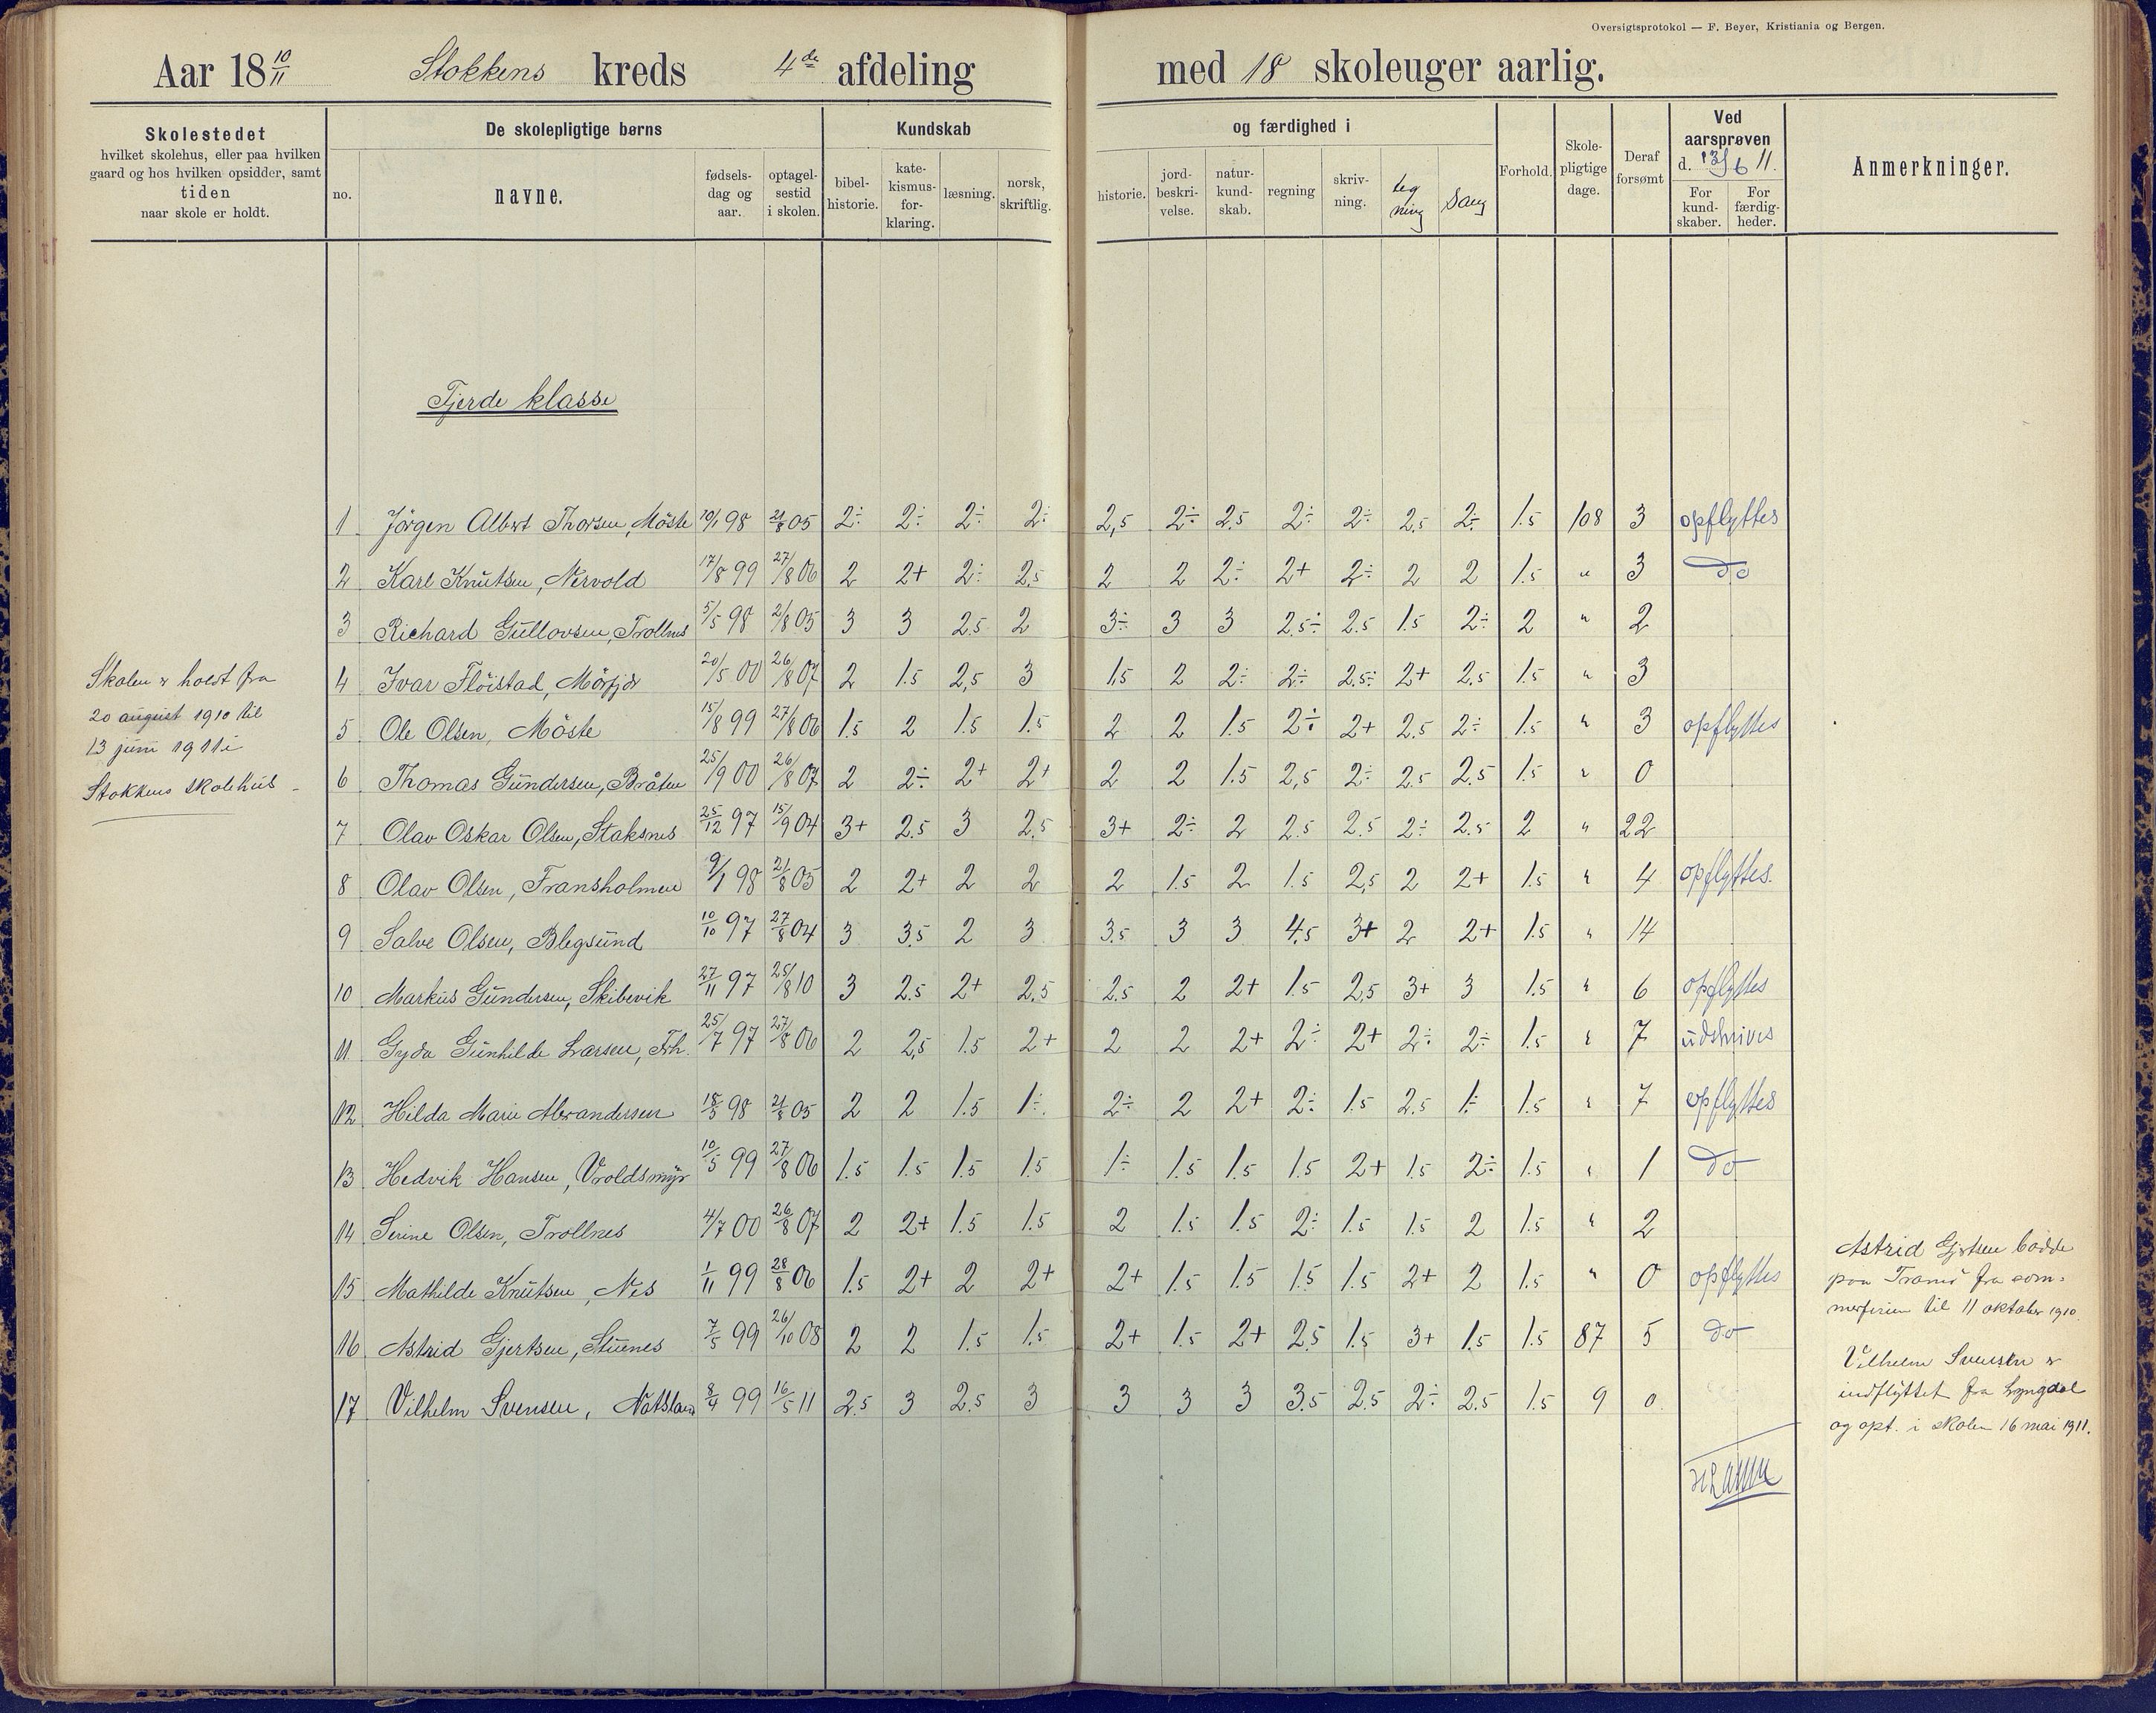 Oversigtsprotokol — F. Beyer, Kristiania og Bergen.
Aar 18 10/11 Stokkens kreds 4de afdeling med 18 skoleuger aarlig.
Skolestedet
hvilket skolehus, eller paa hvilken
gaard og hos hvilken opsidder, samt
tiden
naar skole er holdt.
De skolepligtige børns
no.
navne.
fødsels-
dag og
aar.
optagel-
sestid
i skolen.
Kundskab
bibel-
historie.
kate-
kismus-
for-
klaring.
læsning.
norsk,
skriftlig.
og færdighed i
historie.
jord-
beskri-
velse.
natur-
kund-
skab.
regning
skriv-
ning.
teg
ning
Sang
Forhold.
Skole-
pligtige
dage.
Deraf
forsømt
Ved
aarsprøven
d. 13/6 11.
For
kund-
skaber.
For
færdig-
heder.
Anmerkninger.
Fjerde klasse
1 Jörgen Albert Thorsen, Möste 10/1 98 21/8 05 2÷ 2÷ 2÷ 2÷ 2,5 2÷ 2.5 2÷ 2÷ 2.5 2÷ 1.5 108 3 opflyttes
2 Karl Knutsen, Nervold 17/8 99 27/8 06 2 2+ 2÷ 2,5 2 2 2÷ 2+ 2÷ 2 2 1.5 " 3 do
3 Richard Gullovsen, Trollnes 5/5 98 21/8 05 3 3 2.5 2 3÷ 3 3 2.5÷ 2.5 1.5 2÷ 2 " 2
4 Ivar Flöistad, Mörfjær 20/5 00 26/8 07 2 1.5 2,5 3 1.5 2 2÷ 2÷ 2.5÷ 2+ 2.5 1.5 " 3
5 Ole Olsen, Möste 15/8 99 27/8 06 1.5 2 1.5 1.5 2 2 1.5 2÷ 2+ 2.5 2÷ 1.5 " 3 opflyttes
6 Thomas Gundersen, Bråten 25/9 00 26/8 07 2 2÷ 2+ 2+ 2 2 1.5 2,5 2÷ 2.5 2.5 1.5 " 0
7 Olav Oskar Olsen, Staksnes 25/12 97 15/9 04 3+ 2.5 3 2.5 3+ 2÷ 2 2.5 2.5 2÷ 2.5 2 " 22
8 Olav Olsen, Fransholmen 9/1 98 21/8 05 2 2+ 2 2 2 1.5 2 1.5 2,5 2 2+ 1.5 " 4 opflyttes.
9 Salve Olsen, Blegsund 10/10 97 27/8 04 3 3.5 2 3 3.5 3 3 4.5 3+ 2 2+ 1.5 " 14
10 Markus Gundersen, Skibevik 27/11 97 25/8 10 3 2.5 2+ 2.5 2.5 2 2+ 1.5 2,5 3+ 3 1.5 " 6 opflyttes
11 Gyda Gunhilde Larsen, Frh. 25/7 97 27/8 06 2 2,5 1.5 2+ 2 2 2+ 2÷ 2+ 2÷ 2÷ 1.5 " 7 udskrives
12 Hilda Marie Alexandersen 18/5 98 21/8 05 2 2 1.5 1÷ 2÷ 2 2+ 2÷ 1.5 2.5 1÷ 1.5 " 7 opflyttes
13 Hedvik Hansen, Vroldsmyr 10/5 99 27/8 06 1.5 1.5 1.5 1.5 1÷ 1.5 1.5 1.5 2+ 1.5 2÷ 1.5 " 1 do
14 Serine Olsen, Trollnes 4/7 00 26/8 07 2 2+ 1.5 1.5 2 1.5 1.5 2÷ 1.5 1.5 2 1.5 " 2
15 Mathilde Knutsen, Nes 1/11 99 28/8 06 1.5 2+ 2 2+ 2+ 1.5 1.5 1.5 1.5 2+ 2 1.5 " 0 opflyttes
16 Astrid Gjertsen, Stuenes 7/5 99 26/10 08 2 2 1.5 1.5 2+ 1.5 2+ 2.5 1.5 3+ 1.5 1.5 87 5 do
17 Vilhelm Svensen, 8/4 99 16/5 11 2.5 3 2.5 3 3 3 3 3.5 2.5 2÷ 2.5 1.5 9 0
Skolen er holdt fra
20 august 1910 til
13 juni 1911 i
Stokkens skolehus
Astrid Gjertsen bodde
paa Tromö fra som-
merferien til 11 oktober 1910.
Vilhelm Svensen er
indflyttet fra Lyngdal
og opt. i skolen 16 mai 1911.